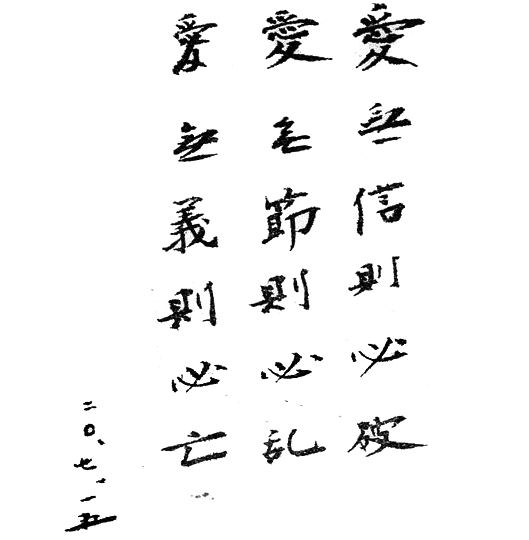 愛無信則必破
愛無節則必乱
愛無義則必亡
二〇、七、一五